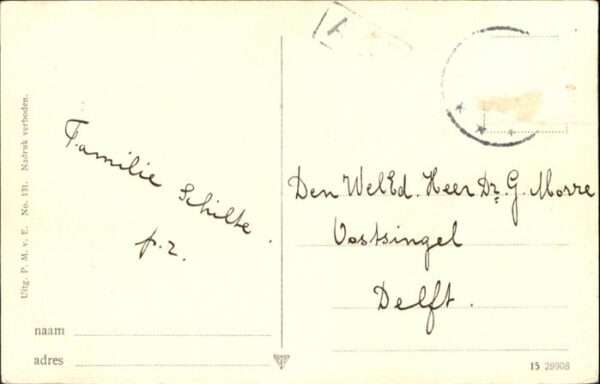 Uitg. P. M. v. E. No. 131. Nadruk verboden.
Familie Schilte.
p.r.
Den WelEd. Heer Dr. G. Morre
Oostsingel
Delft.
naam
adres
15 29908